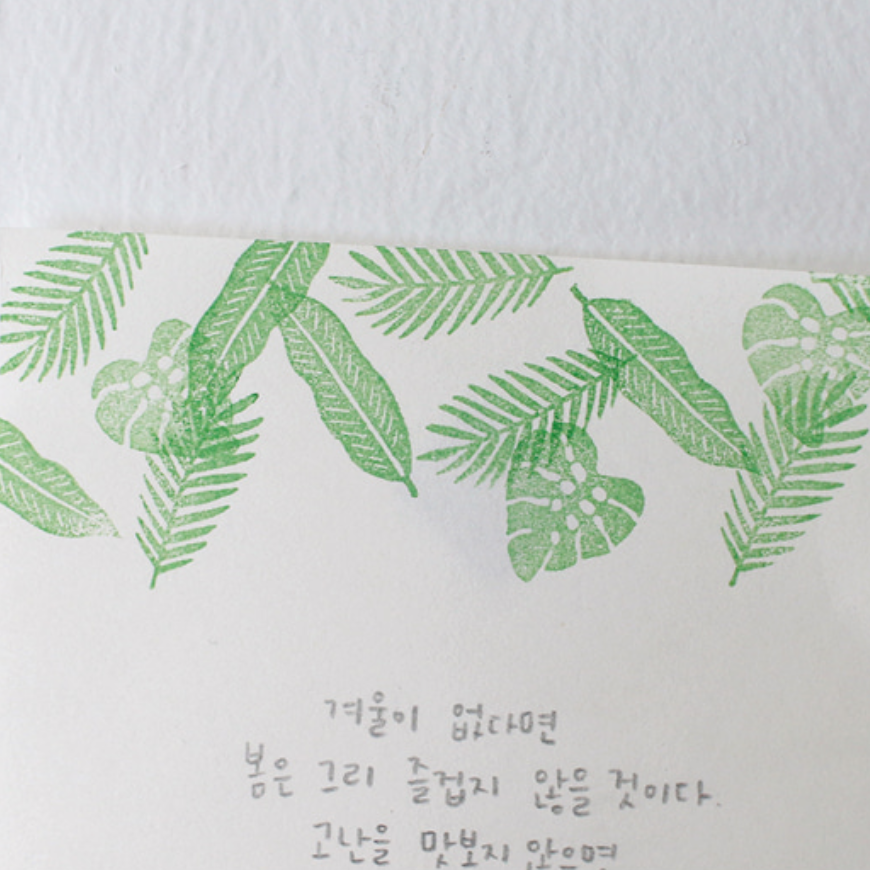 겨울이 없다면
봄은 그리 즐겁지 않을 것이다.
고난을 맛보지 않으면